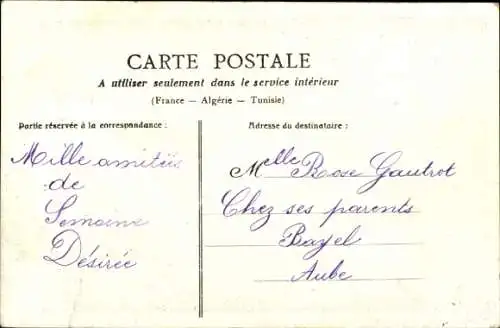 CARTE POSTALE
A utiliser seulement dans le service intérieur
(France — Algérie — Tunisie)
Partie réservée à la correspondance :
Adresse du destinataire :
Mille amitiés
de
Semaine
Désirée
Melle Rose Gautrot
Chez ses parents
Bayel
Aube